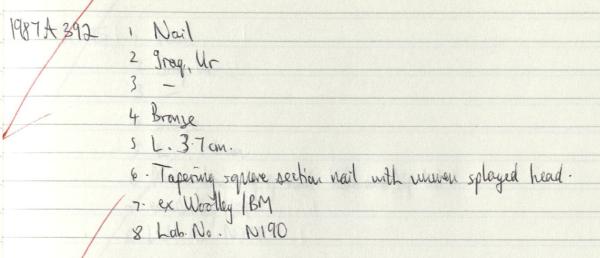 1987A392 1 Nail
2 Iraq, Ur
3 —
4 Bronze
5 L. 3.7cm.
6. Tapering square section nail with uneven splayed head.
7. ex Woolley / BM
8 Lab. No. N190